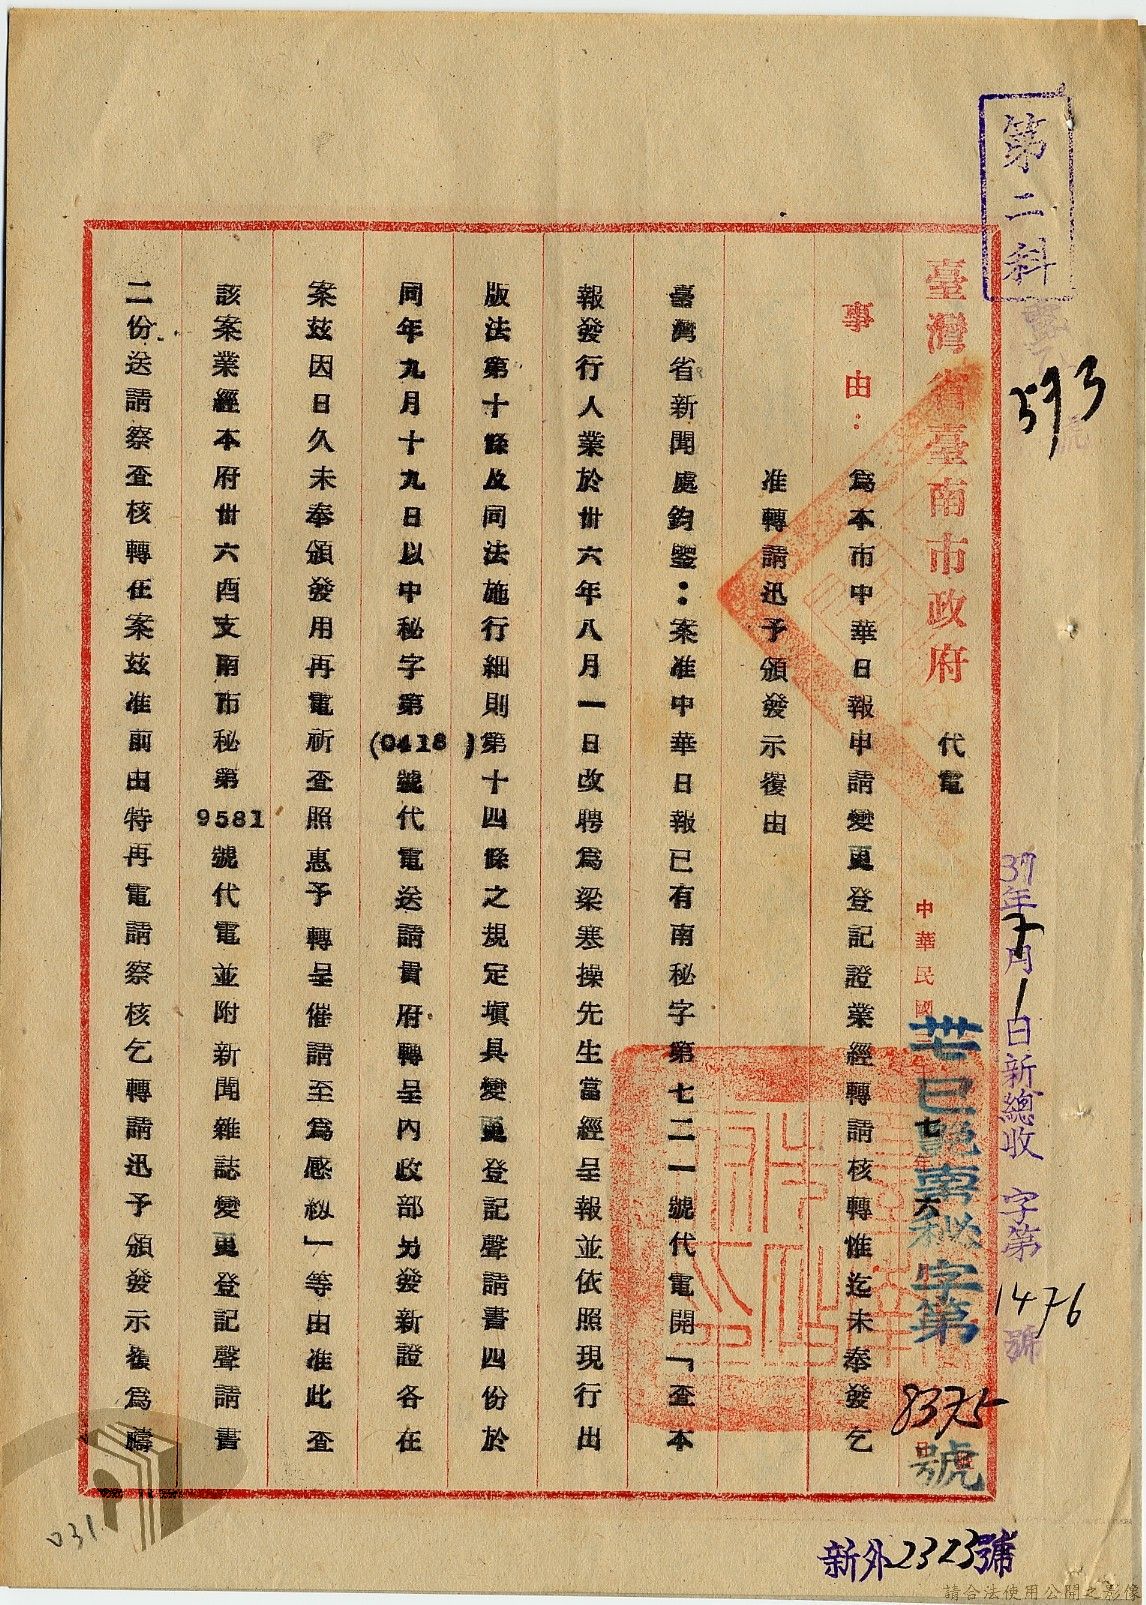 第二科
393
號
臺灣省臺南市政府
代電
中華民國
七年六
卅巳
南秘字第8375號
37年7月1日新總收 字第1476號
事由：
為本市中華日報申請變更登記證業經轉請核轉惟迄未奉發乞
准轉請迅予頒發示復由
臺灣省新聞處鈞鑒：案准中華日報已有南秘字第七二一號代電開「查本
報發行人業於卅六年八月一日改聘為梁寒操先生當經呈報並依照現行出
版法第十條及同法施行細則第十四條之規定填具變更登記聲請書四份於
同年九月十九日以中秘字第(0418)號代電送請貴府轉呈內政部另發新證各在
案茲因日久未奉頒發用再電祈查照惠予轉呈催請至為感紉」等由准此查
該案業經本府卅六酉支南市秘第9581號代電並附新聞雜誌變更登記聲請書
二份送請察查核轉在案茲准前由特再電請察核乞轉請迅予頒發示後為禱
新外2323號
031
請合法使用公開之影像